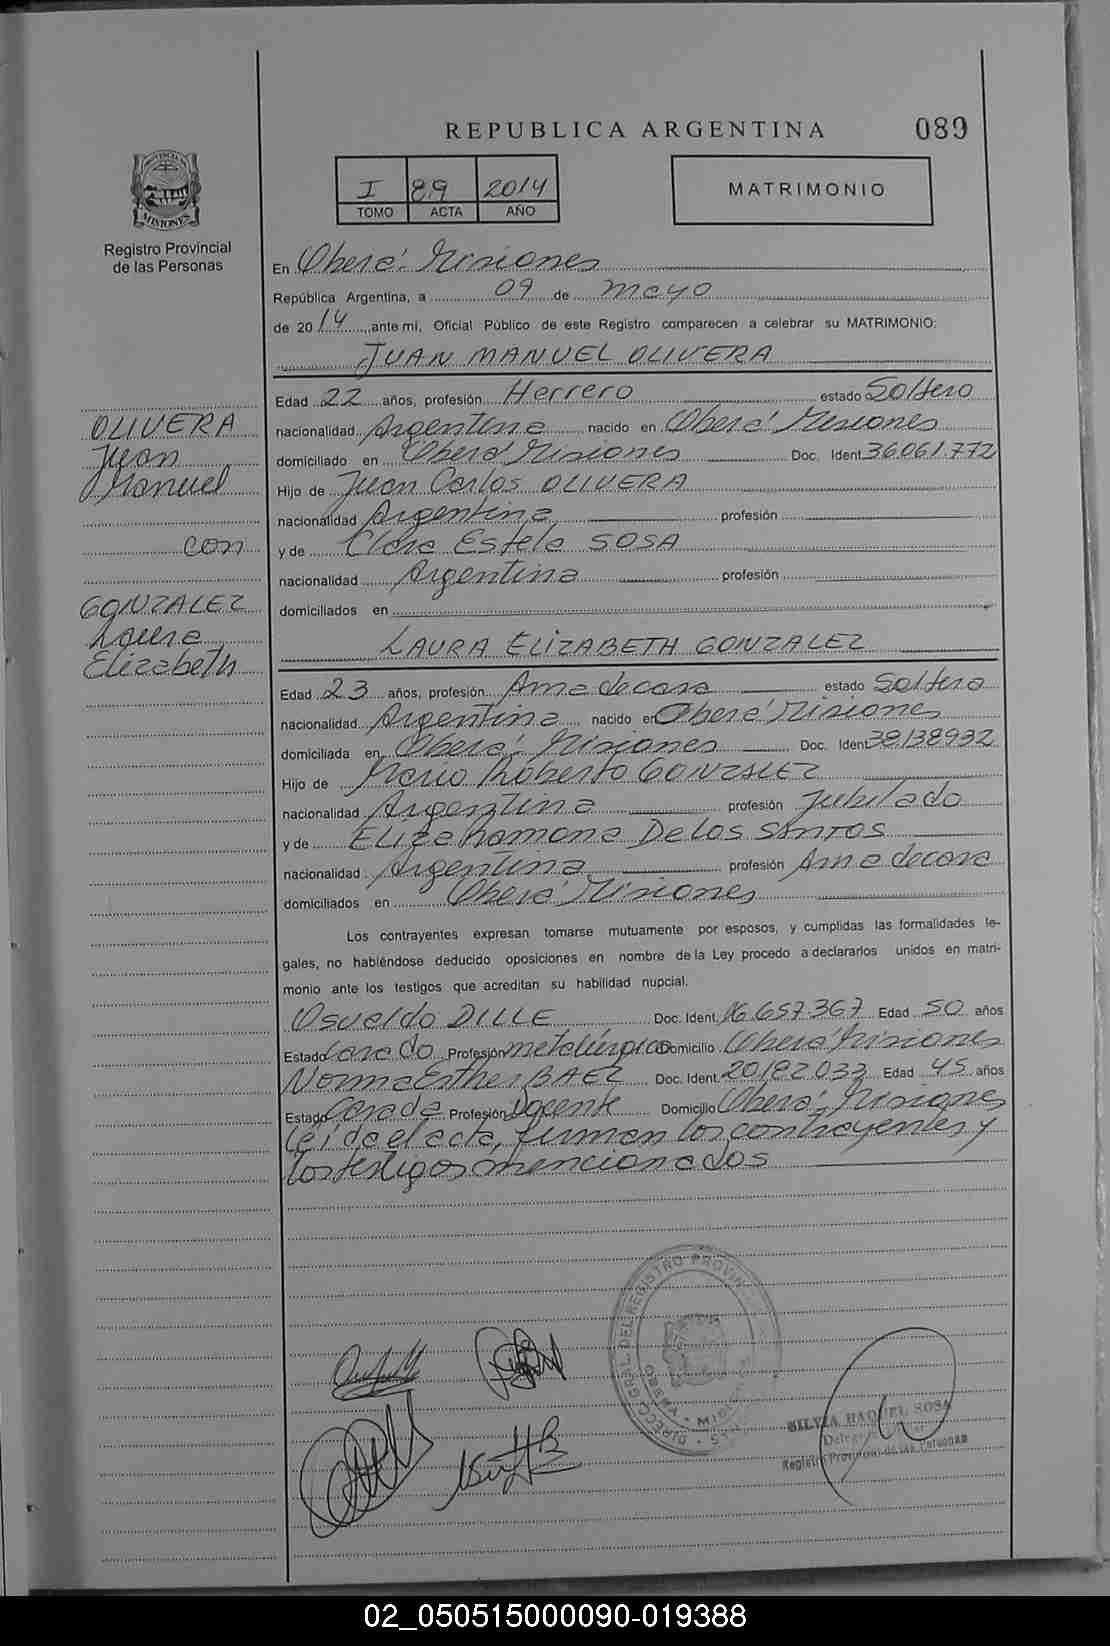 REPUBLICA ARGENTINA
089
I 89 2014
TOMO ACTA AÑO
MATRIMONIO
PROVINCIA DE
MISIONES
Registro Provincial
de las Personas
En Oberá - Misiones
República Argentina, a 09 de mayo
de 2014, ante mi, Oficial Público de este Registro comparecen a celebrar su MATRIMONIO:
JUAN MANUEL OLIVERA
OLIVERA
Juan
Manuel
con
GONZALEZ
Laura
Elizabeth
Edad 22 años, profesión Herrero estado Soltero
nacionalidad Argentina nacido en Oberá Misiones
domiciliado en Oberá Misiones Doc. Ident. 36.061.772
Hijo de Juan Carlos OLIVERA
nacionalidad Argentina profesión
y de Clara Estela SOSA
nacionalidad Argentina profesión
domiciliados en
LAURA ELIZABETH GONZALEZ
Edad 23 años, profesión Ama de casa estado Soltera
nacionalidad Argentina nacido en Oberá Misiones
domiciliada en Oberá - Misiones Doc. Ident 38138932
Hijo de Mario Roberto GONZALEZ
nacionalidad Argentina profesión Jubilado
y de Eliza Ramona De los SANTOS
nacionalidad Argentina profesión Ama de casa
domiciliados en Oberá Misiones
Los contrayentes expresan tomarse mutuamente por esposos, y cumplidas las formalidades le-
gales, no habiéndose deducido oposiciones en nombre de la Ley procedo a declararlos unidos en matri-
monio ante los testigos que acreditan su habilidad nupcial.
Osvaldo DILLE Doc. Ident. 16.657.367 Edad 50 años
Estado Casado Profesión metalúrgico Domicilio Oberá Misiones
Norma Esther BAEZ Doc. Ident. 20182033 Edad 45 años
Estado Casada Profesión Docente Domicilio Oberá - Misiones
Leída el acta, firman los contrayentes y
los testigos mencionados
DIRECC. GRAL. DEL REGISTRO PROVINC
MISIONES
SILVIA RAQUEL SOSA
Registro Provincial de las Personas
02_050515000090-019388